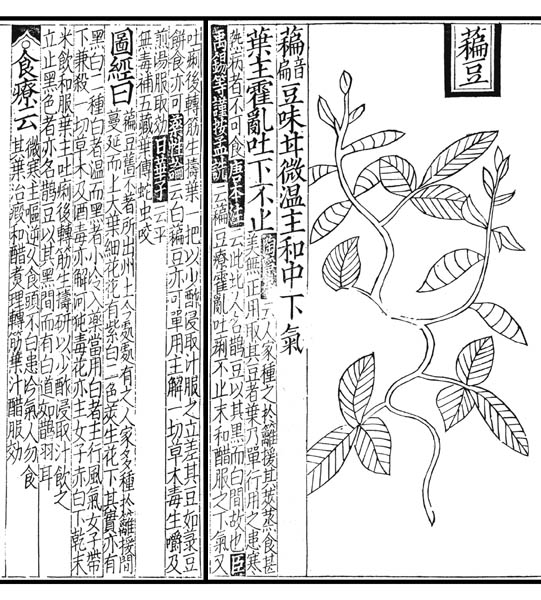 藊豆
藊音扁豆味甘微溫主和中下氣
葉主霍亂吐下不止
人家種之於籬援其莢蒸食甚
美無正用取其豆者葉乃單行用之患寒
熱病者不可食唐本注云此北人名鵲豆以其黑而白間故也臣
禹錫等謹按孟詵云藊豆療霍亂吐痢不止末和醋服之下氣又
吐痢後轉筋生擣葉一把以少酢浸取汁服之立差其豆如菉豆
餅食亦可藥性論云白藊豆亦可單用主解一切草木毒生嚼及
煎湯服取効日華子云平
無毒補五藏葉傅蛇虫咬
圖經曰
藊豆舊不著所出州土今處處有之人家多種於籬援間
蔓延而上大葉細花花有紫白二色莢生花下其實亦有
黑白二種白者溫而黑者小冷入藥當用白者主行風氣女子帶
下兼殺一切草木及酒毒亦解河㹠毒花亦主女子赤白下乾末
米飲和服葉主吐痢後轉筋生擣研以少酢浸取汁飲之
立止黑色者亦名鵲豆以其黑間而有白道如鵲羽耳
食療云
微寒主嘔逆久食頭不白患冷氣人勿食
其葉治瘕和醋煮理轉筋葉汁醋服効